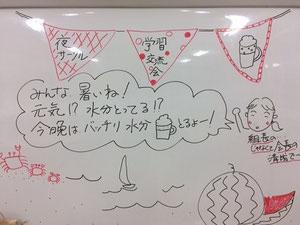 夜
サークル
学習
交流
会
みんな 暑いね!
元気!? 水分とってる!?
今晩は バッチリ 水分 とるよー!
組長の
じゃなくて 会長の